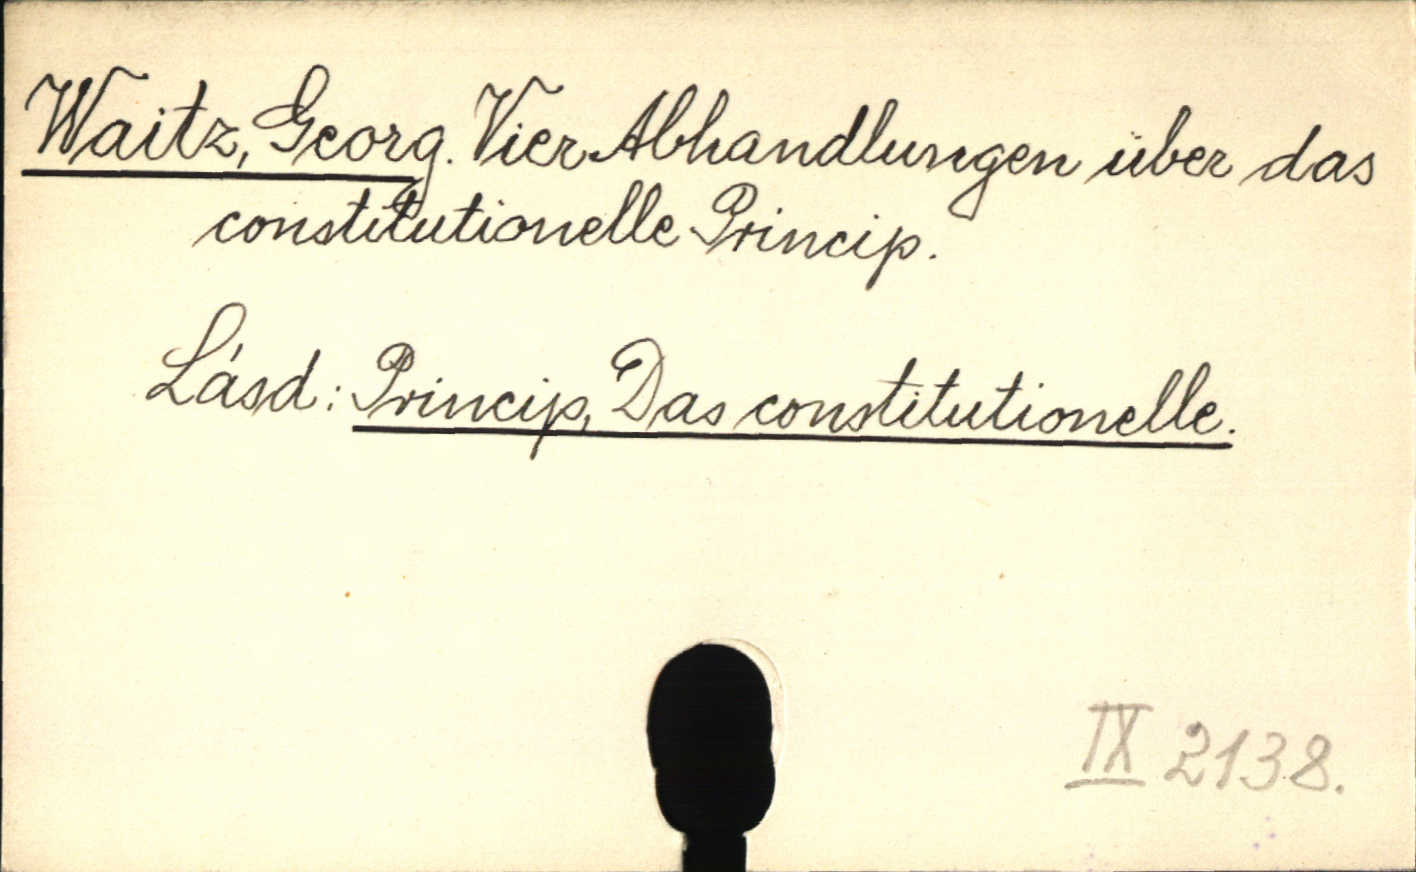 Waitz, Georg. Vier Abhandlungen über das
constitutionelle Princip.
Lásd: Princip, Das constitutionelle.
IX 2138.